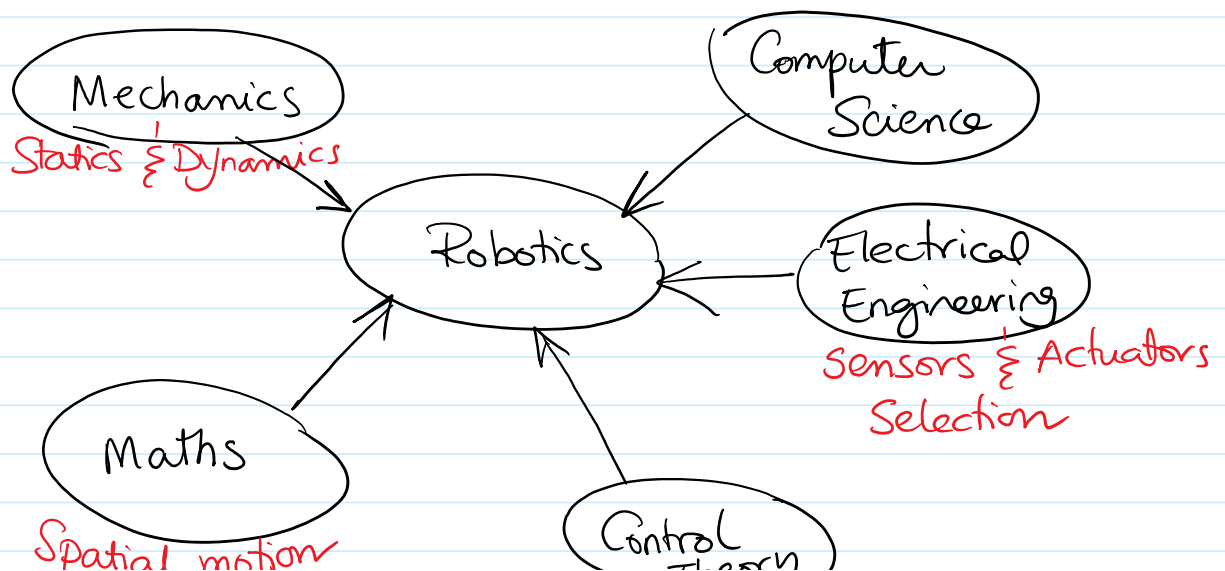 Mechanics
Statics & Dynamics
Computer
Science
Robotics
Electrical
Engineering
Sensors & Actuators
Selection
Maths
Spatial motion
Control
Theory